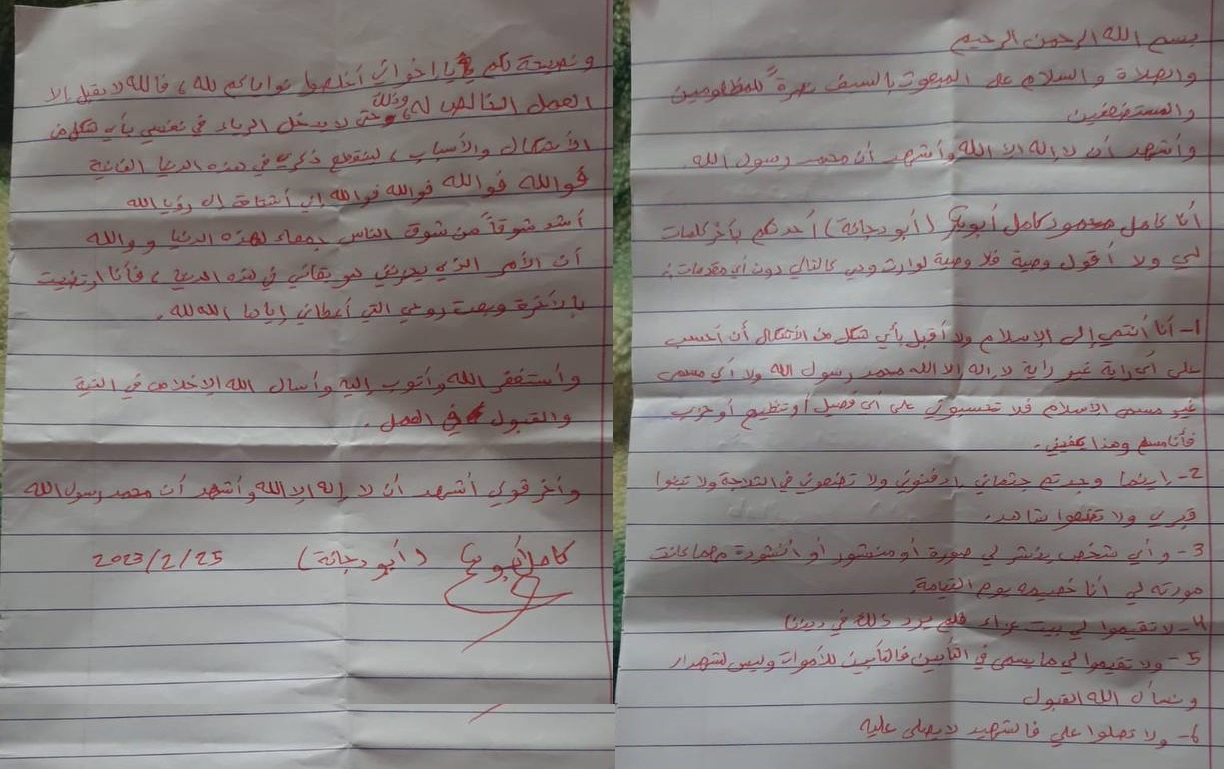 بسم الله الرحمن الرحيم
والصلاة والسلام على المبعوث بالسيف نصرةً للمظلومين
والمستضعفين
وأشهد أن لا إله إلا الله وأشهد أن محمد رسول الله
أنا كامل محمود كامل أبو بكر (أبو دجانة) أحدثكم بآخر كلمات
لي ولا أقول وصية فلا وصية لوارث وهي كالتالي دون أي مقدمات:
1- أنا أنتمي إلى الإسلام ولا أقبل بأي شكل من الأشكال أن أحسب
على أي راية غير راية لا إله إلا الله محمد رسول الله ولا أي مسمى
غير مسمى الاسلام فلا تحسبوني على أي فصيل أو تنظيم أو حزب
فأنا مسلم وهذا يكفيني.
2- أينما وجدتم جثماني إدفنوني ولا تضعوني في الثلاجة ولا تبنوا
قبري ولا تضعوا شاهد.
3- وأي شخص ينشر لي صورة أو منشور أو أنشودة مهما كانت
مودته لي أنا خصيمه يوم القيامة.
4- لا تقيموا لي بيت عزاء فلم يرد ذلك في ديننا
5- ولا تقيموا لي ما يسمى في التأبين فالتأبين للأموات وليس لشهداء
ونسأل الله القبول
6- ولا تصلوا علي فالشهيد لا يصلى عليه
ونصيحة لكم يا إخواني أخلصوا نواياكم لله، فالله لا يقبل إلا
العمل الخالص له، وذلك حتى لا يدخل الرياء في نفسي بأي شكل من
الأشكال والأسباب، لينقطع ذكري في هذه الدنيا الفانية
فوالله فوالله فوالله فوالله إني أشتاق إلى رؤيا الله
أشد شوقاً من شوق الناس بمعاء لهذه الدنيا ووالله
أن الأمر الذي يحزنني هو بقائي في هذه الدنيا، فأنا ارتضيت
بالآخرة وبعت روحي التي أعطاني إياها الله لله.
وأستغفر الله وأتوب إليه وأسال الله الإخلاص في النية
والقبول في العمل.
وآخر قولي أشهد أن لا إله إلا الله وأشهد أن محمد رسول الله
كامل أبو بكر (أبو دجانة) 2023/2/25